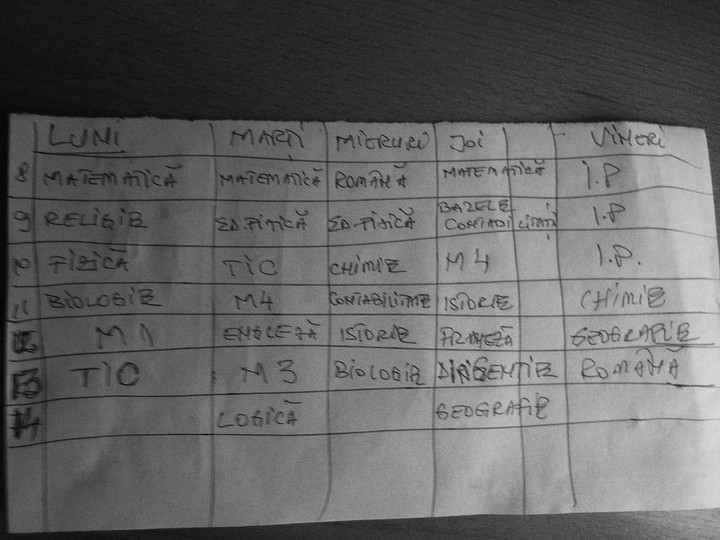 LUNI MARȚI MIERCURI JOI VINERI
8 MATEMATICĂ MATEMATICĂ ROMÂNĂ MATEMATICĂ I.P
9 RELIGIE ED.FIZICĂ ED.FIZICĂ BAZELE CONTABILITĂȚI I.P
10 FIZICĂ TIC CHIMIE M4 I.P.
11 BIOLOGIE M4 CONTABILITATE ISTORIE CHIMIE
12 M1 ENGLEZĂ ISTORIE FRANCEZĂ GEOGRAFIE
13 TIC M3 BIOLOGIE DIRIGENTIE ROMANĂ
14 LOGICĂ GEOGRAFIE